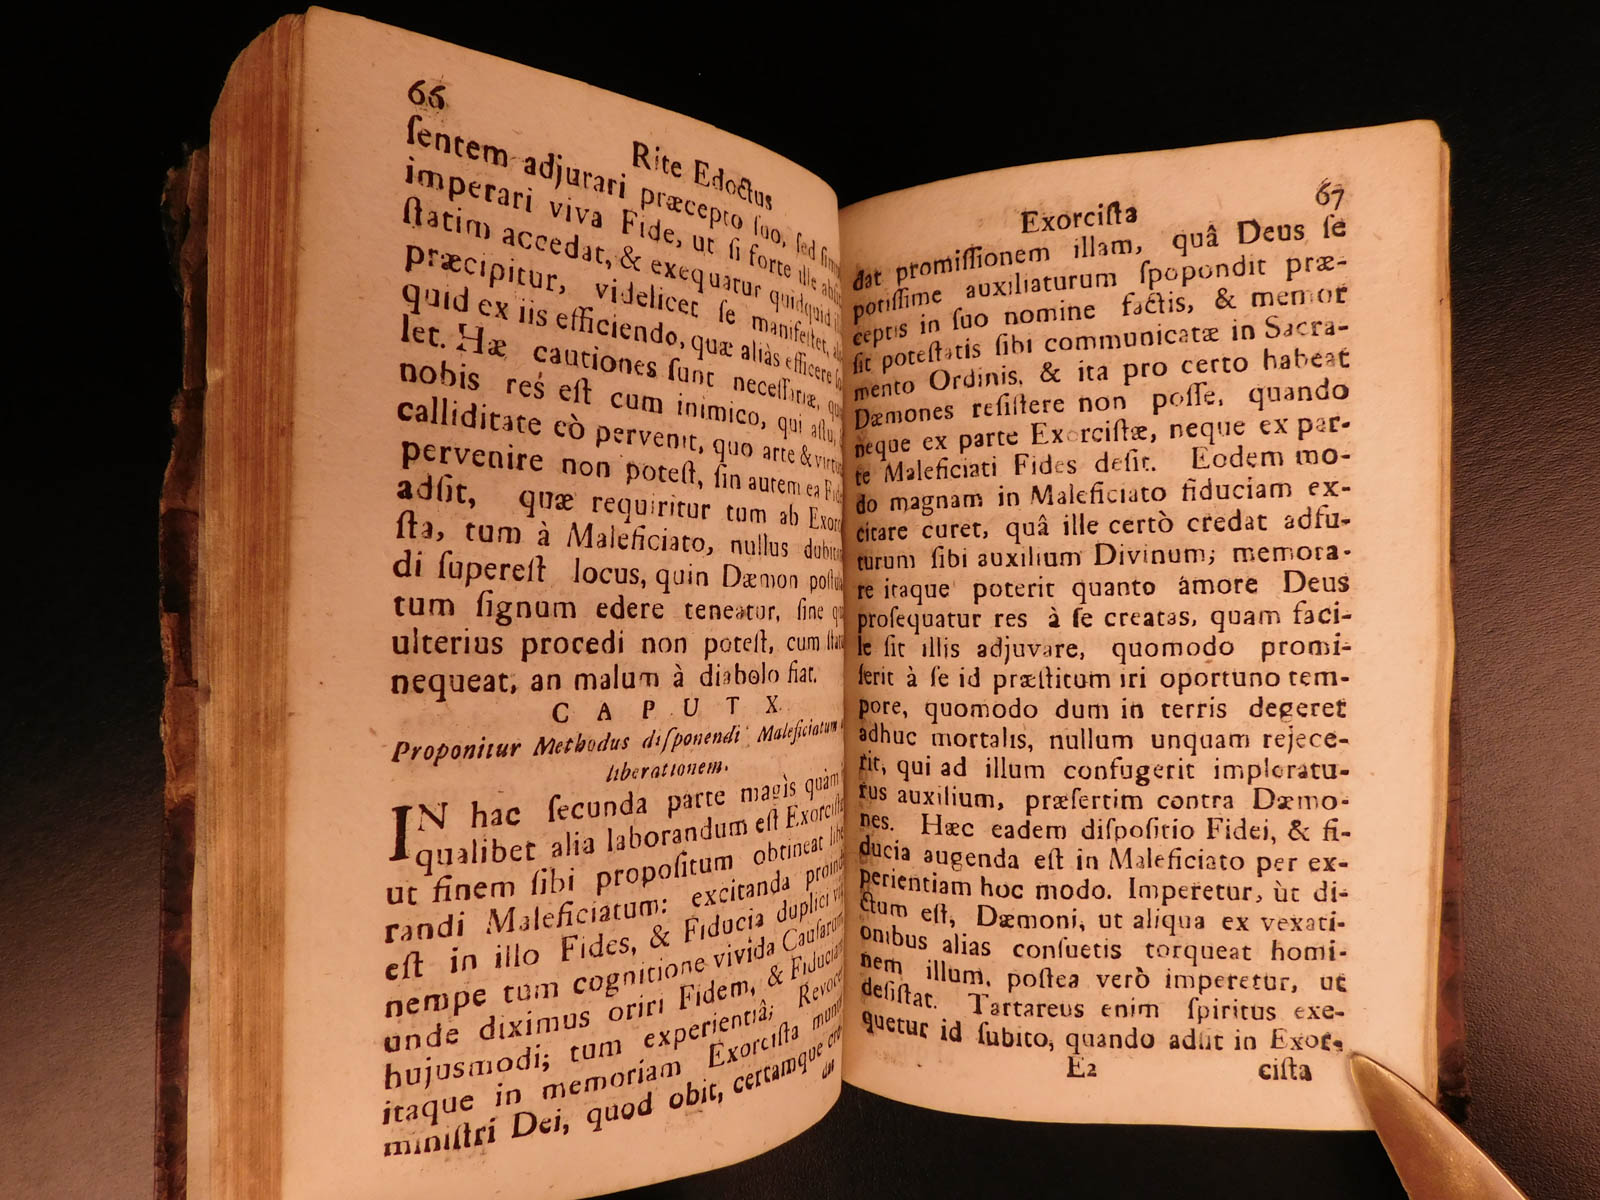 66
Rite Edoctus
ſentem adjurari præcepto ſuo, ſed
imperari viva Fide, ut ſi forte ille
ſtatim accedat, & exequatur quidquid
præcipitur, videlicet ſe manifeſtet,
quid ex iis efficiendo, quæ aliàs efficere
let. Hæ cautiones ſunt neceſſariæ,
nobis res eſt cum inimico, qui aſtu,
calliditate eò pervenit, quo arte &
pervenire non poteſt, ſin autem ea
adſit, quæ requiritur tum ab
ſta, tum à Maleficiato, nullus
di ſupereſt locus, quin Dæmon
tum ſignum edere teneatur, ſine
ulterius procedi non poteſt, cum
nequeat, an malum à diabolo fiat.
CAPUT X.
Proponitur Methodus diſponendi Maleficiatum
liberationem.
IN hac ſecunda parte magis quàm
qualibet alia laborandum eſt
ut finem ſibi propoſitum obtineat
randi Maleficiatum: excitanda
eſt in illo Fides, & Fiducia duplici
nempe tum cognitione vivida
unde diximus oriri Fidem, &
hujusmodi; tum experientiâ;
itaque in memoriam Exorciſta
miniſtri Dei, quod obit, certamque
dat
67
Exorciſta
dat promiſſionem illam, quâ Deus ſe
potiſſime auxiliaturum ſpopondit præ-
ceptis in ſuo nomine factis, & memor
ſit poteſtatis ſibi communicatæ in Sacra-
mento Ordinis, & ita pro certo habeat
Dæmones reſiſtere non poſſe, quando
neque ex parte Exorciſtæ, neque ex par-
te Maleficiati Fides deſit. Eodem mo-
do magnam in Maleficiato fiduciam ex-
citare curet, quâ ille certò credat adfu-
turum ſibi auxilium Divinum; memora-
re itaque poterit quanto amore Deus
proſequatur res à ſe creatas, quam faci-
le ſit illis adjuvare, quomodo promi-
ſerit à ſe id præſtitum iri oportuno tem-
pore, quomodo dum in terris degeret
adhuc mortalis, nullum unquam rejece-
rit, qui ad illum confugerit imploratu-
rus auxilium, præſertim contra Dæmo-
nes. Hæc eadem diſpoſitio Fidei, & fi-
ducia augenda eſt in Maleficiato per ex-
perientiam hoc modo. Imperetur, ùt di-
ctum eſt, Dæmoni, ut aliqua ex vexati-
onibus alias conſuetis torqueat homi-
nem illum, poſtea verò imperetur, ut
deſiſtat. Tartareus enim ſpiritus exe-
quetur id ſubito, quando adſit in Exor-
E2
ciſta